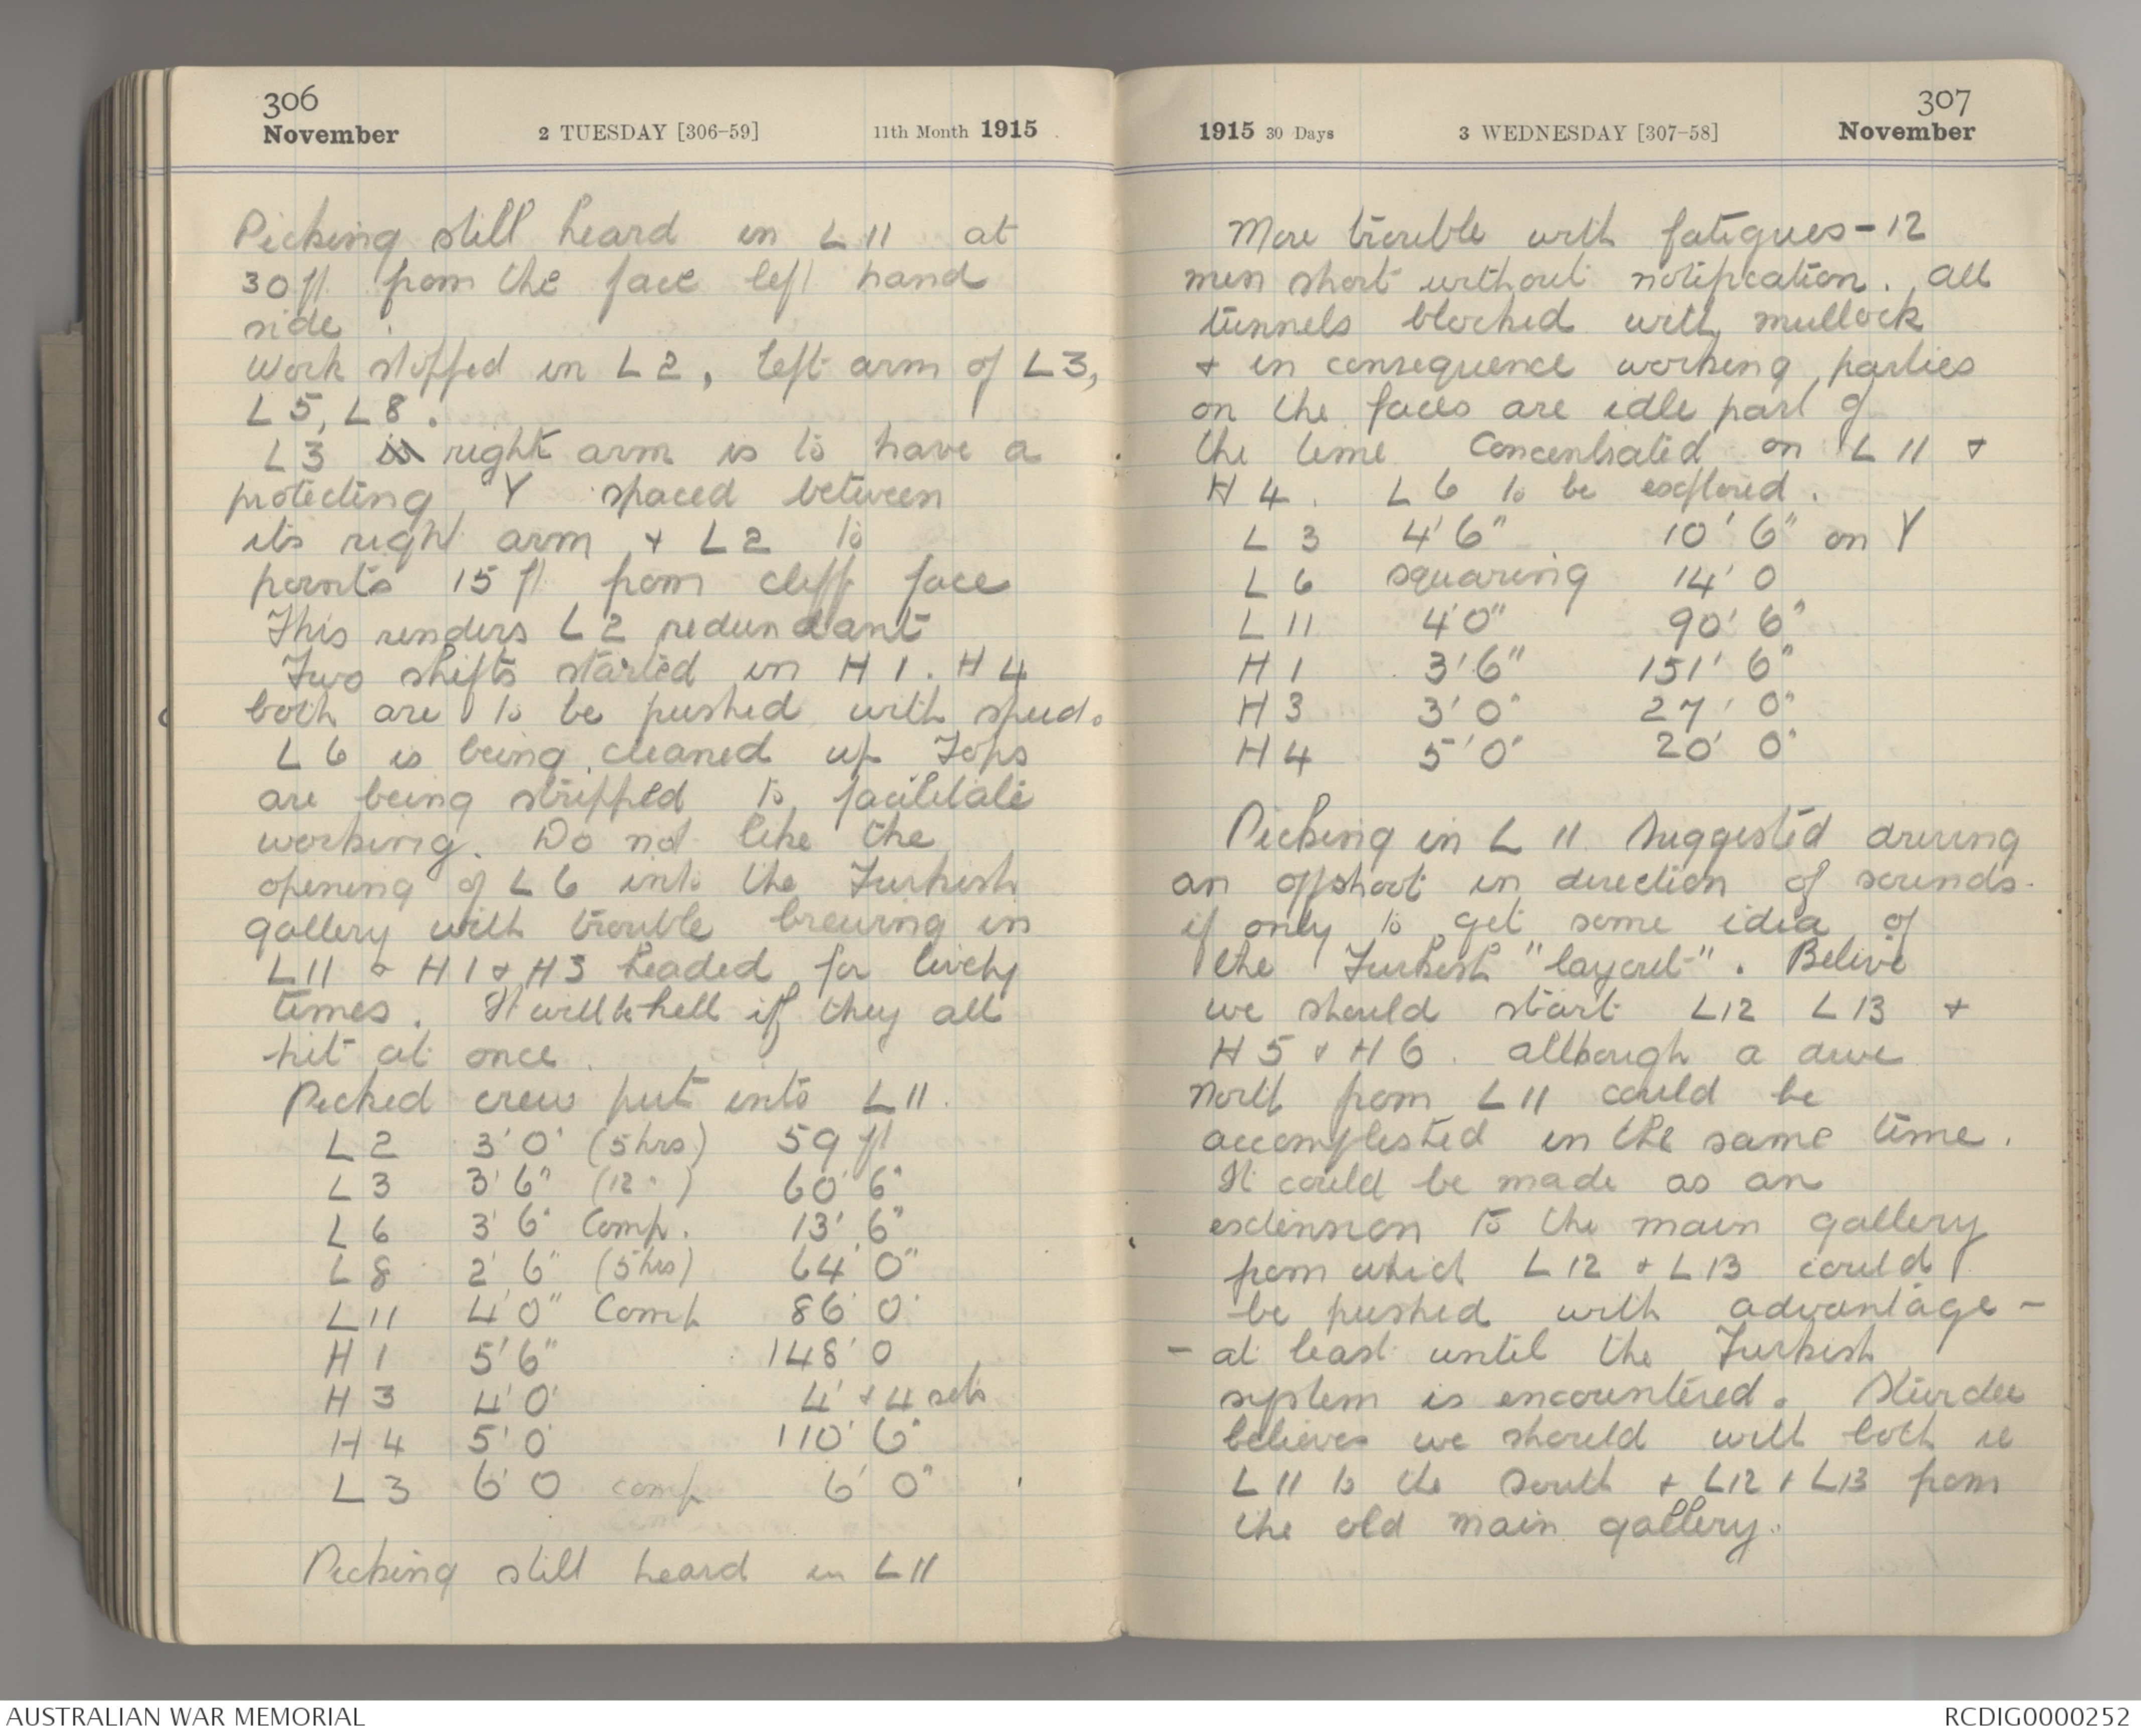 306
November 2 TUESDAY [306-59] 11th Month 1915
Picking still heard in L 11 at
30 ft from the face left hand
side.
Work stopped in L 2, left arm of L 3,
L 5, L 8.
L 3 is right arm is to have a
protecting Y spaced between
its right arm + L 2 to
points 15 ft from cliff face
This renders L 2 redundant
Two shifts started in H 1. H 4
both are to be pushed with speed.
L 6 is being cleaned up Tops
are being stripped to facilitate
working. Do not like the
opening of L 6 into the Turkish
gallery with trouble brewing in
L11 + H 1 + H3 headed for lively
times. It will be hell if they all
hit at once.
Picked crew put into L 11.
L 2 3' 0" (5 hrs) 59 ft
L 3 3' 6" (12 " ) 60' 6"
L 6 3' 6" Comp. 13' 6"
L 8 2' 6" (5 hrs) 64' 0"
L 11 4' 0" Comp 86' 0"
H 1 5' 6" 148' 0
H 3 4' 0' 4' + 4 sets
H 4 5' 0' 110' 6"
L 3 6' 0 comp 6' 0"
Picking still heard in L 11
307
1915 30 Days 3 WEDNESDAY [307-58] November
More trouble with fatigues - 12
men short without notification. All
tunnels blocked with mullock
+ in consequence working parties
on the faces are idle part of
the time Concentrated on L 11 +
H 4. L 6 to be explored.
L 3 4' 6" 10' 6" on Y
L 6 squaring 14' 0
L 11 4' 0" 90' 6"
H 1 3' 6" 151' 6"
H 3 3' 0" 27' 0"
H 4 5' 0" 20' 0"
Picking in L 11. Suggested driving
an offshoot in direction of sounds.
if only to get some idea of
the Turkish "layout". Belive
we should start L12 L 13 +
H 5 + H 6. although a drive
North from L 11 could be
accomplished in the same time.
It could be made as an
extension to the main gallery
from which L 12 + L 13 could
be pushed with advantage -
- at least until the Turkish
system is encountered. Sturdee
believes we should with both ie
L 11 to the South + L12 + L13 from
the old main gallery.
AUSTRALIAN WAR MEMORIAL RCDIG0000252